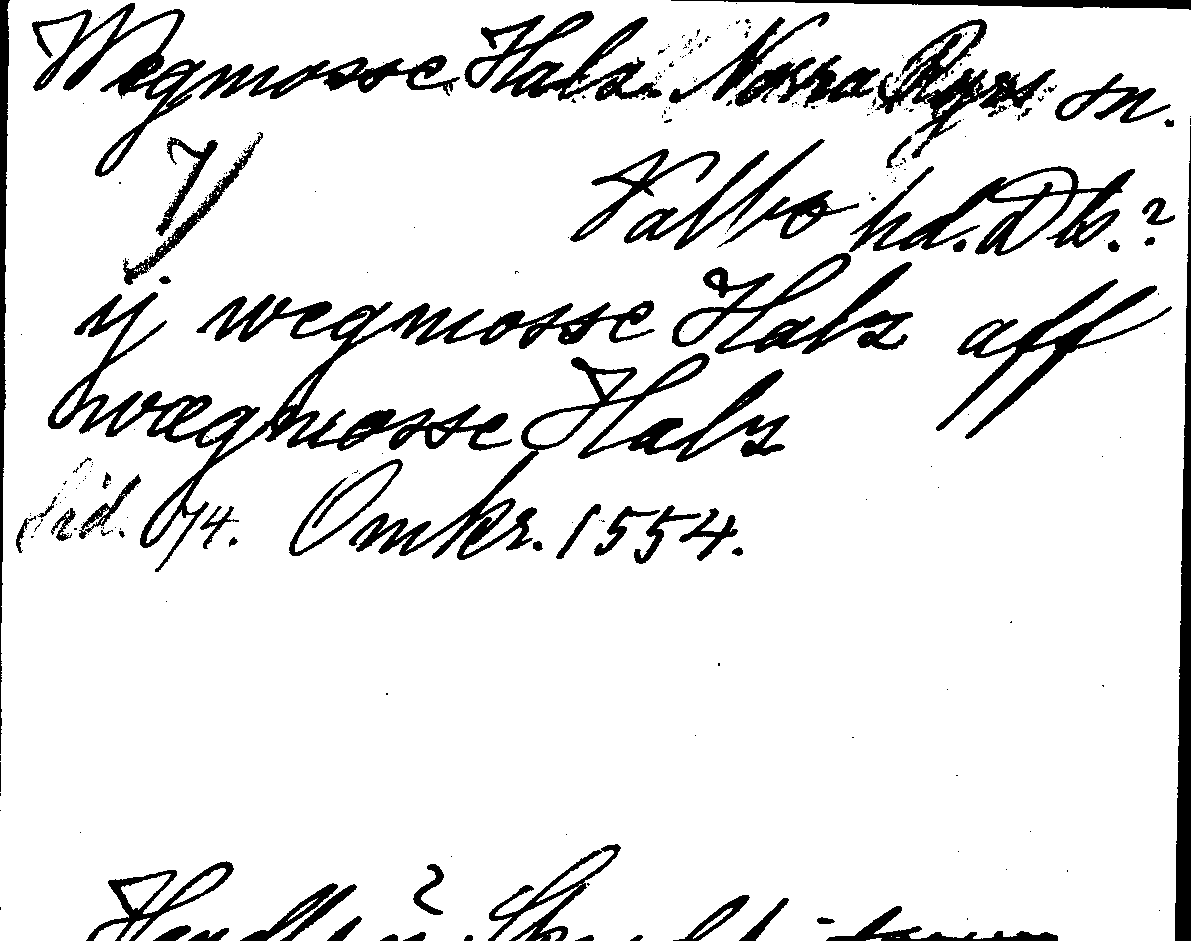 Wegmosse Halz Norra Ryrs sn.
V Valbo hd. Dls.?
ij wegmosse Halz aff
wægmosse Halz
Sid. 74. Omkr. 1554.